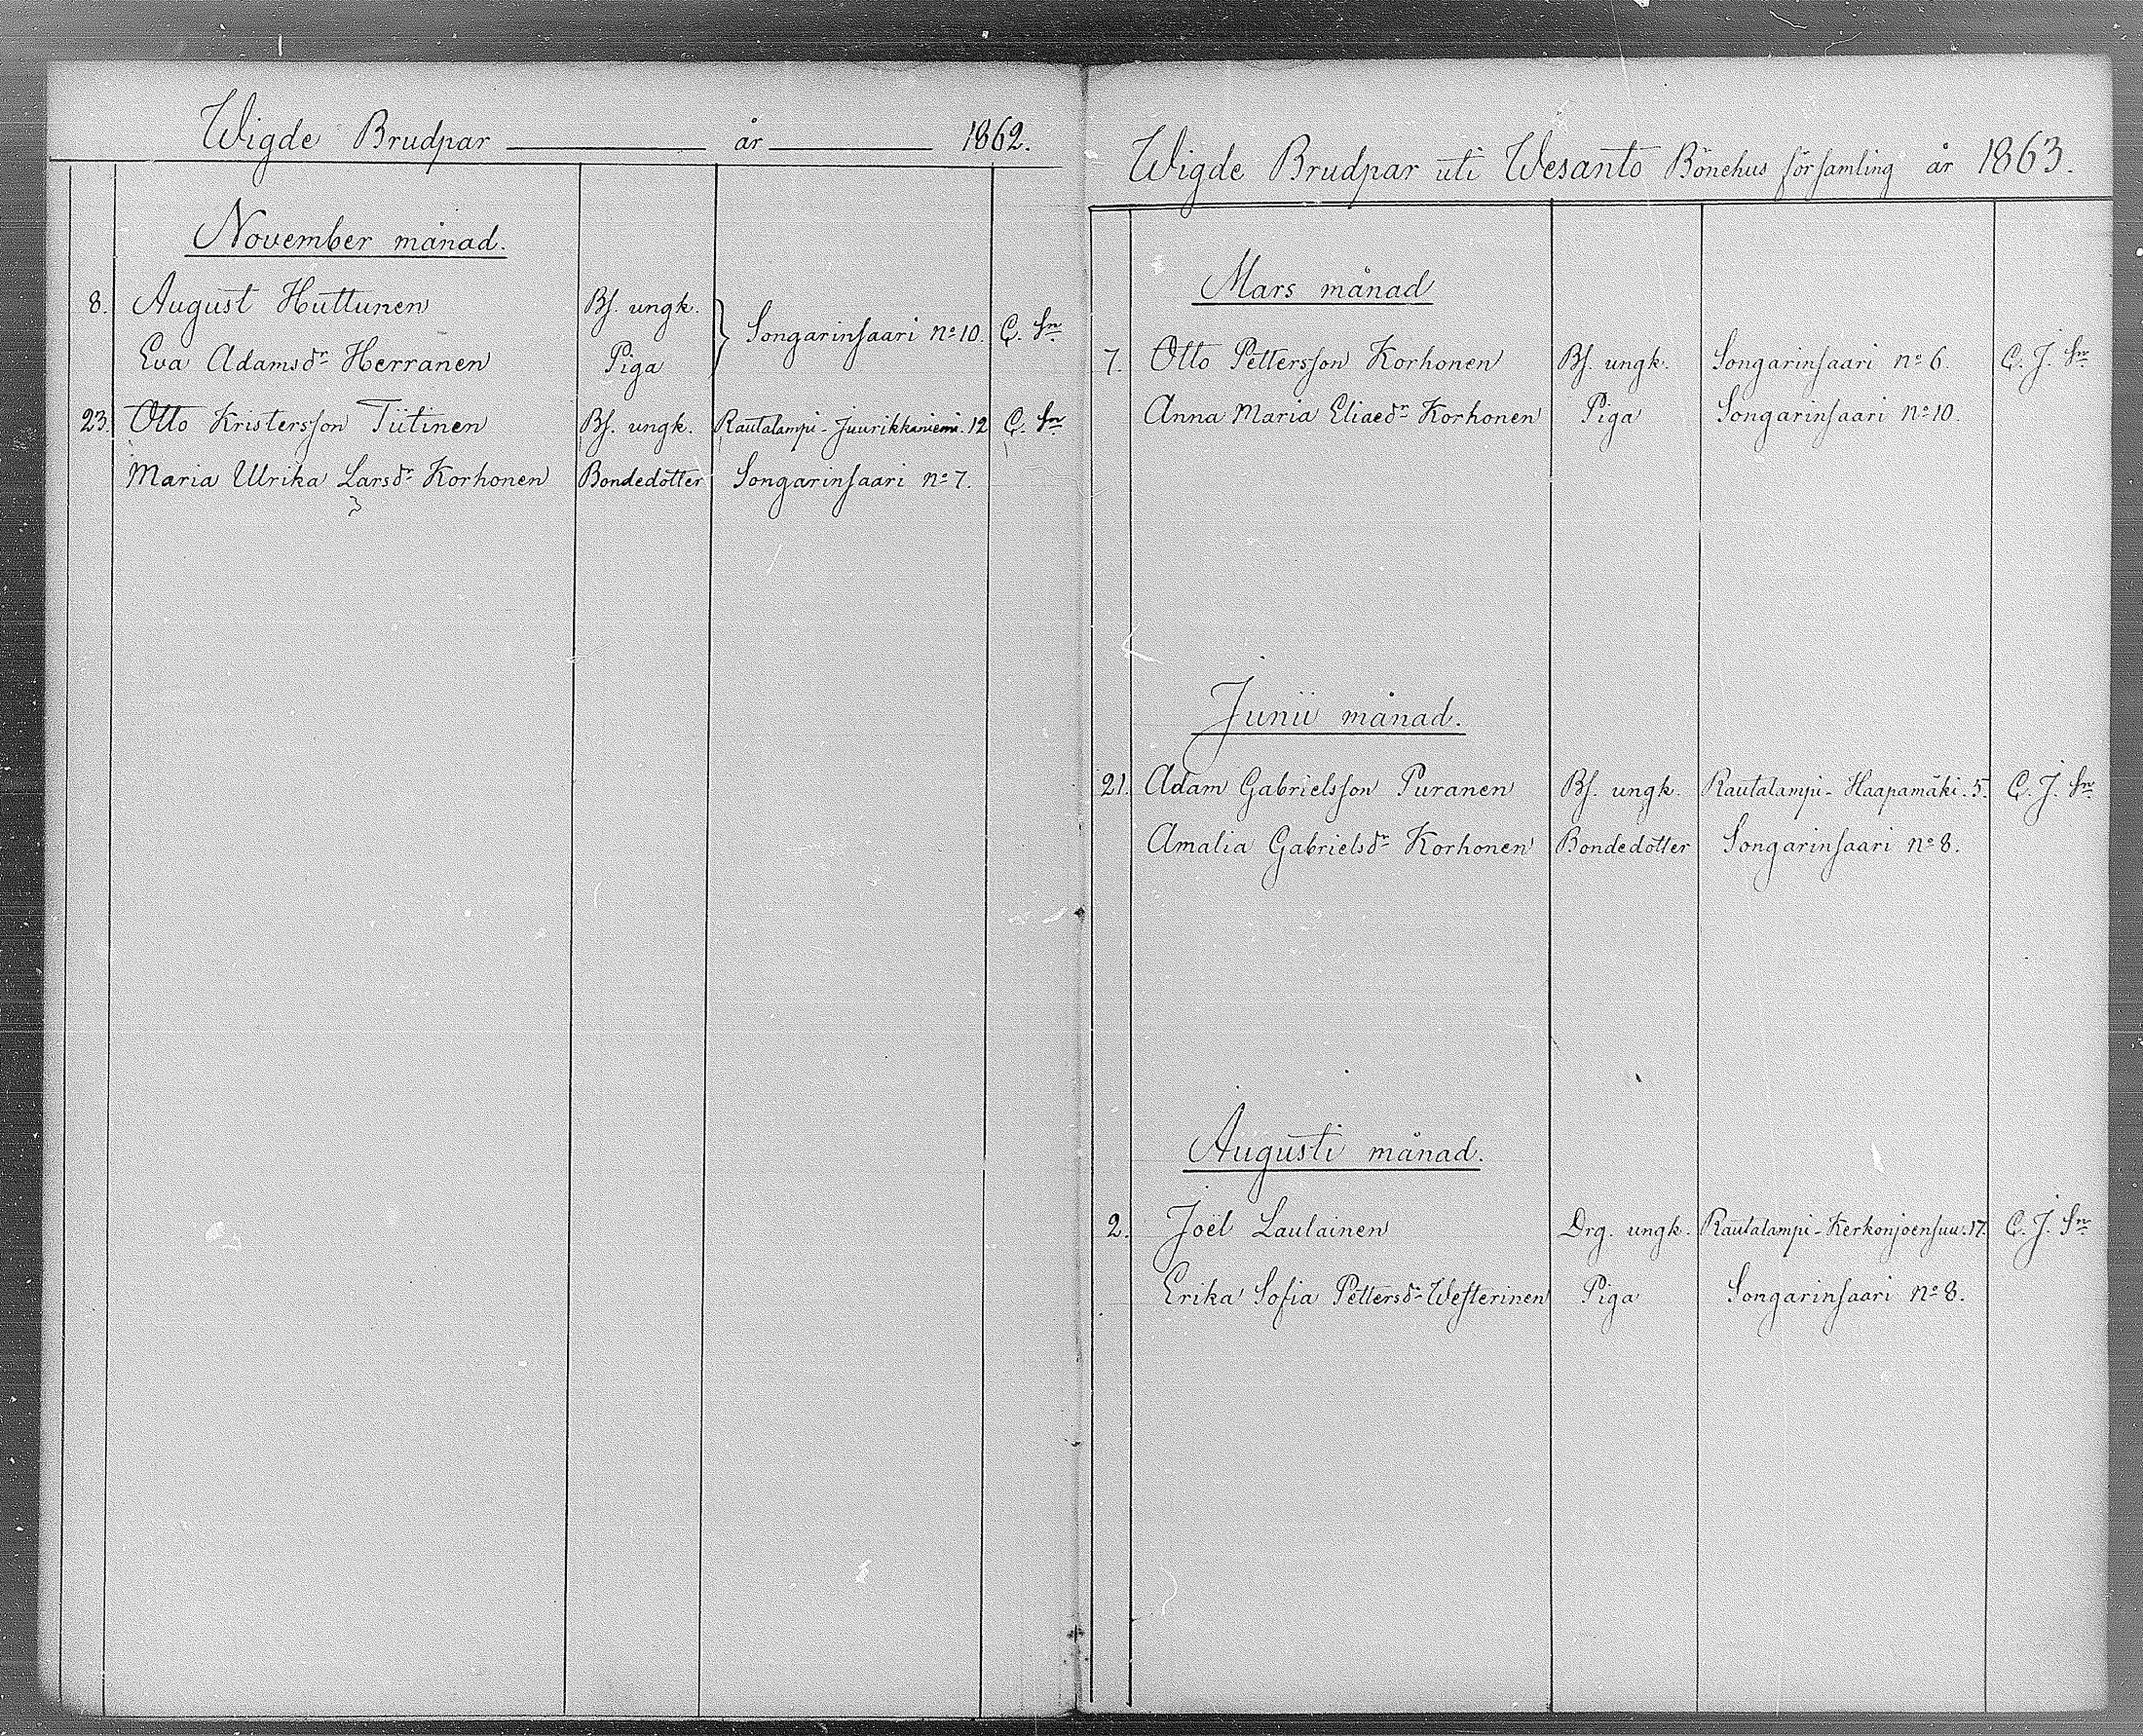 Wigde Brudpar år 1862.
November månad.
8. August Huttunen Bs. ungk. } Songarinsaari No 10. C. Sn
Eva Adamsdr Herranen Piga
23. Otto Kristersson Tiitinen Bs. ungk. Rautalampi - Juurikkaniemi. 12 C. Sn
Maria Ulrika Larsdr Korhonen Bondedotter Songarinsaari No 7.
Wigde Brudpar uti Wesanto Bönehus församling år 1863.
Mars månad
7. Otto Pettersson Korhonen Bs. ungk. Songarinsaari No 6. C. J. Sn
Anna Maria Eliaedr Korhonen Piga Songarinsaari No 10.
Junii månad.
21. Adam Gabrielsson Puranen Bs. ungk. Rautalampi - Haapamäki. 5. C. J. Sn
Amalia Gabrielsdr Korhonen Bondedotter Songarinsaari No 8.
Augusti månad.
2. Joël Laulainen Drg. ungk. Rautalampi - Kerkonjoensuu. 17. C. J. Sn
Erika Sofia Pettersdr Westerinen Piga Songarinsaari No 8.